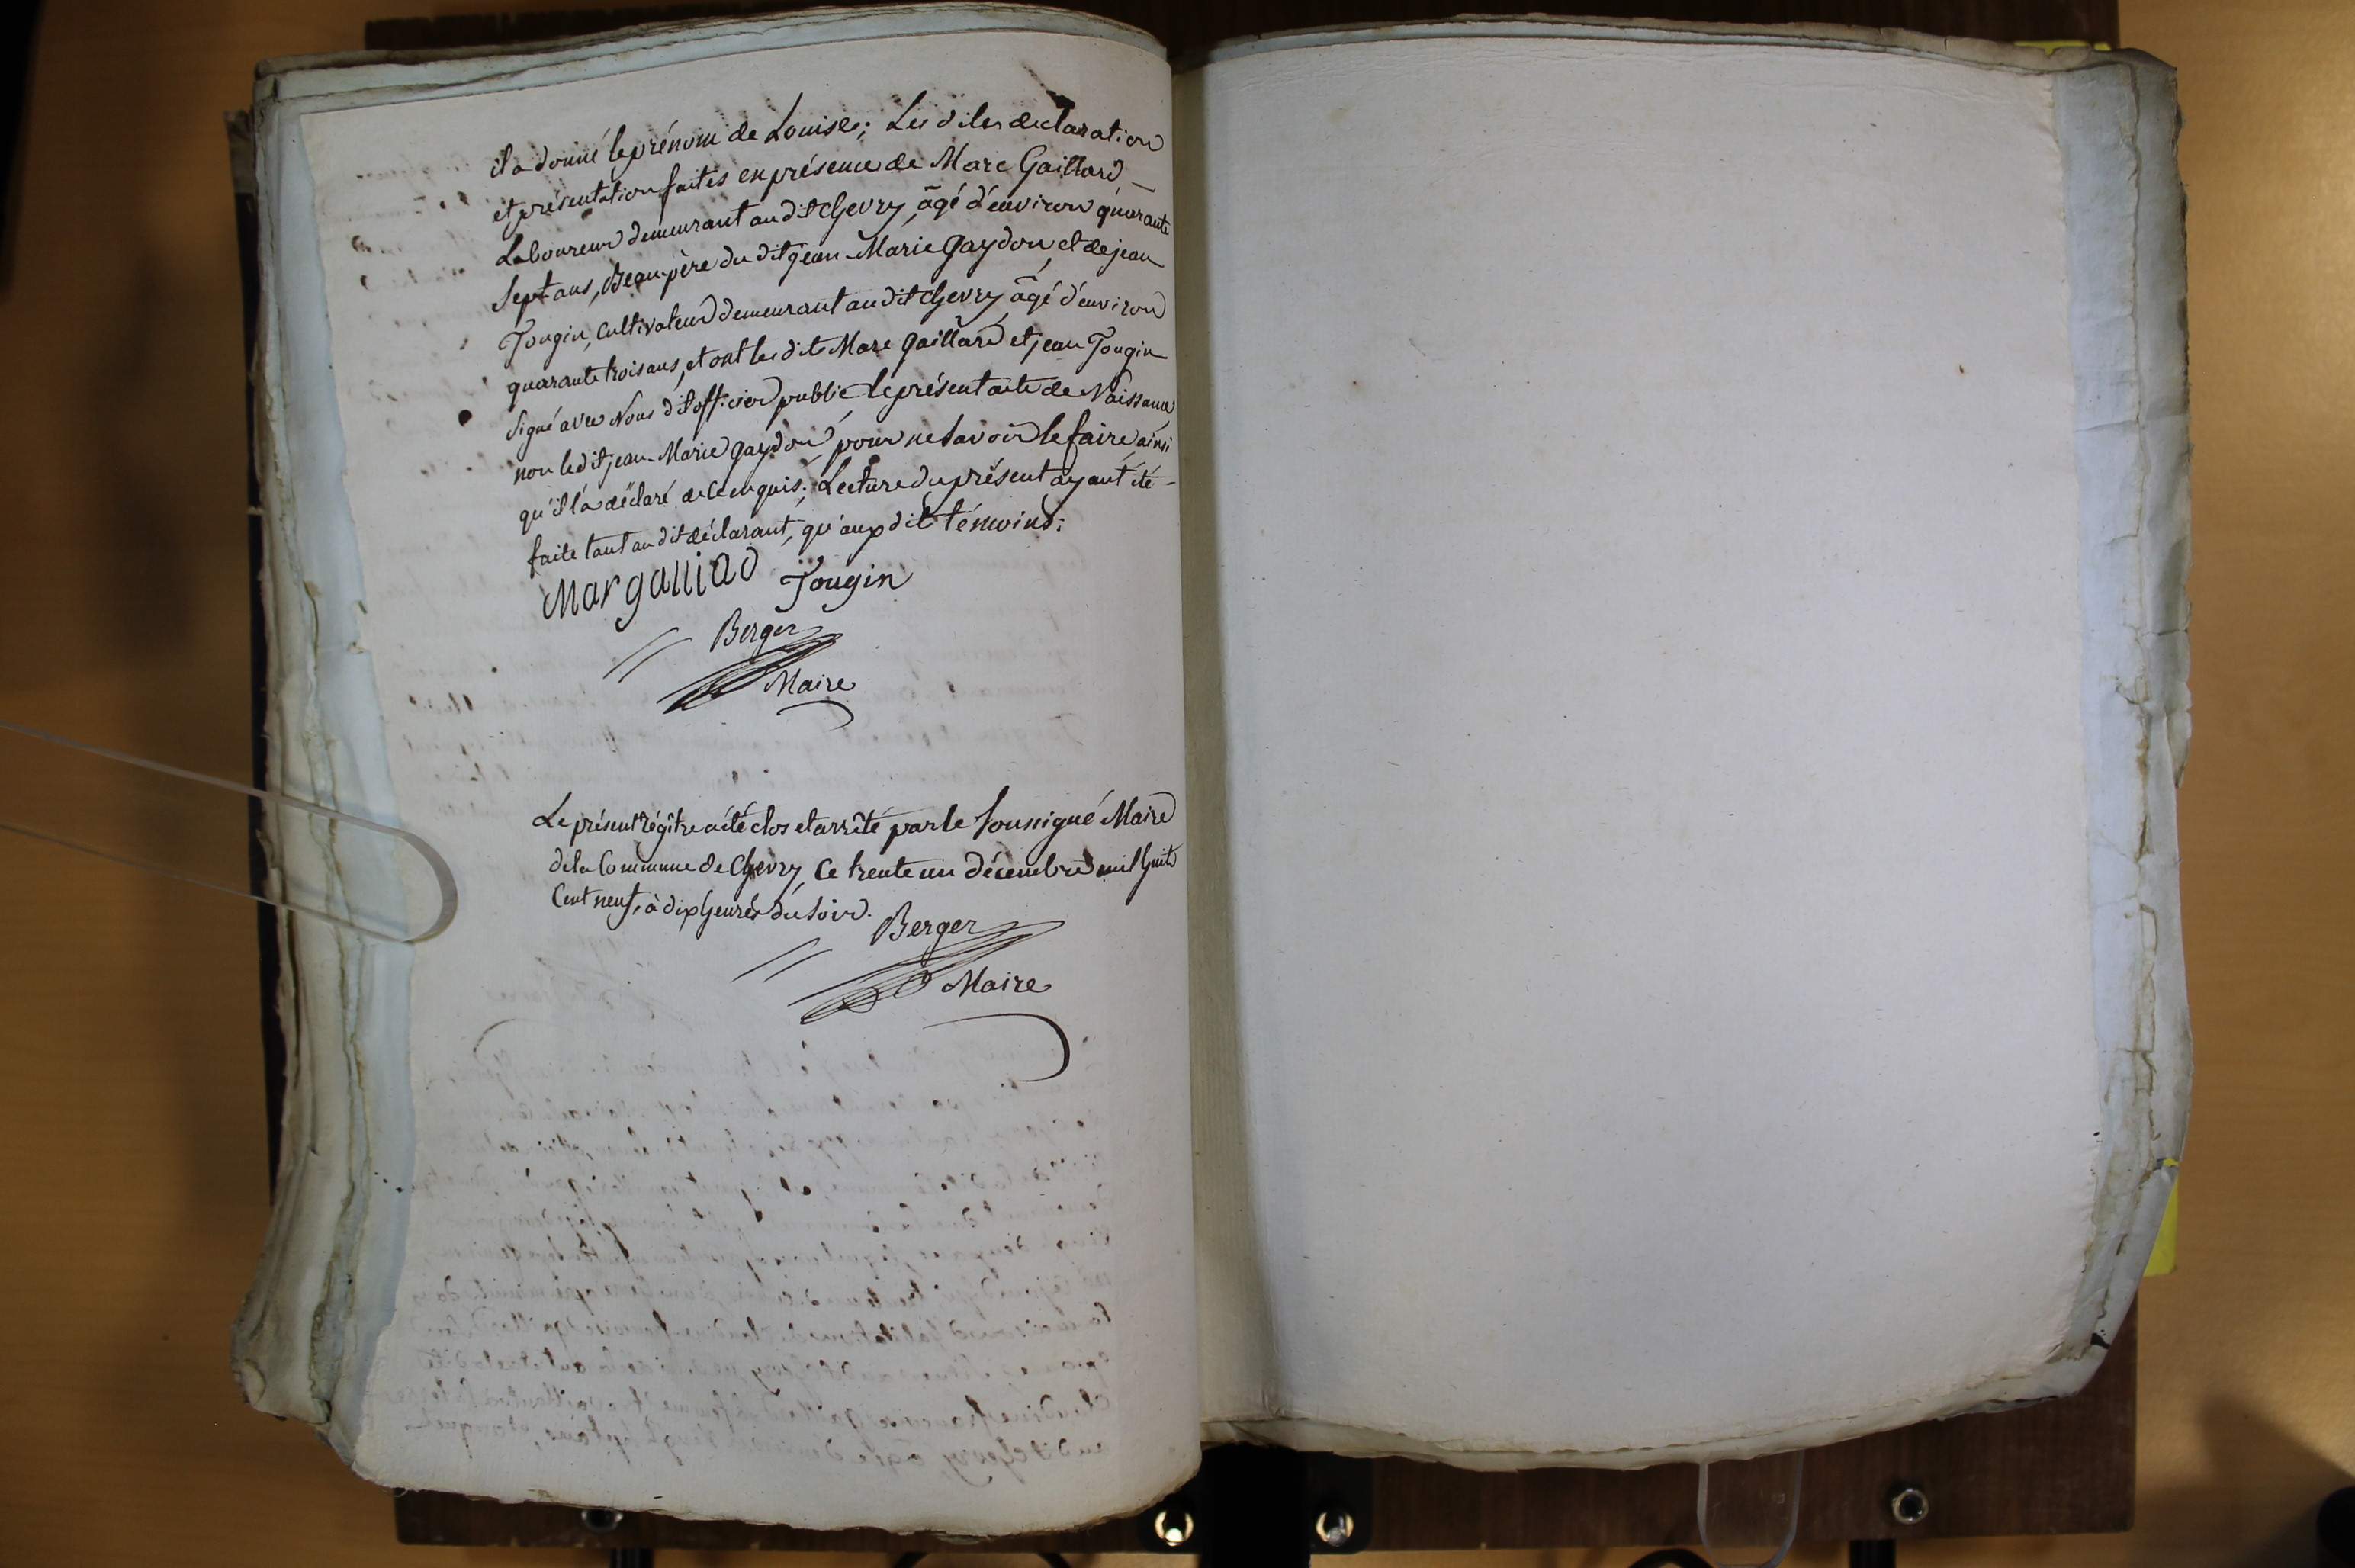 il a donné le prénom de Louise; Les dites declaration
et présentation faites en présence de Marc Gaillard
Laboureur demeurant audit Chevry, âgé d'environ quarante
sept ans, Beaupère du dit jean-Marie Gaydon, et de jean
Tougin, cultivateur demeurant audit Chevry, âgé d'environ
quarante trois ans, et ont les dits Marc Gaillard et jean Tougin
signé avec Nous dit officier public le présent acte de Naissance
non le dit jean-Marie Gaydon, pour ne savoir le faire ainsi
qu'il l'a déclaré de ce enquis; Lecture du présent ayant été
faite tant au dit déclarant, qu'aux dits témoins:
Mar gailiad Tougin
Berger
Maire
Le présent régitre a été clos et arrêté par le sousigné Maire
de la Commune de Chevry, Ce trente un décembre mil huit
Cent neuf, à dix heures du soir.
Berger
Maire